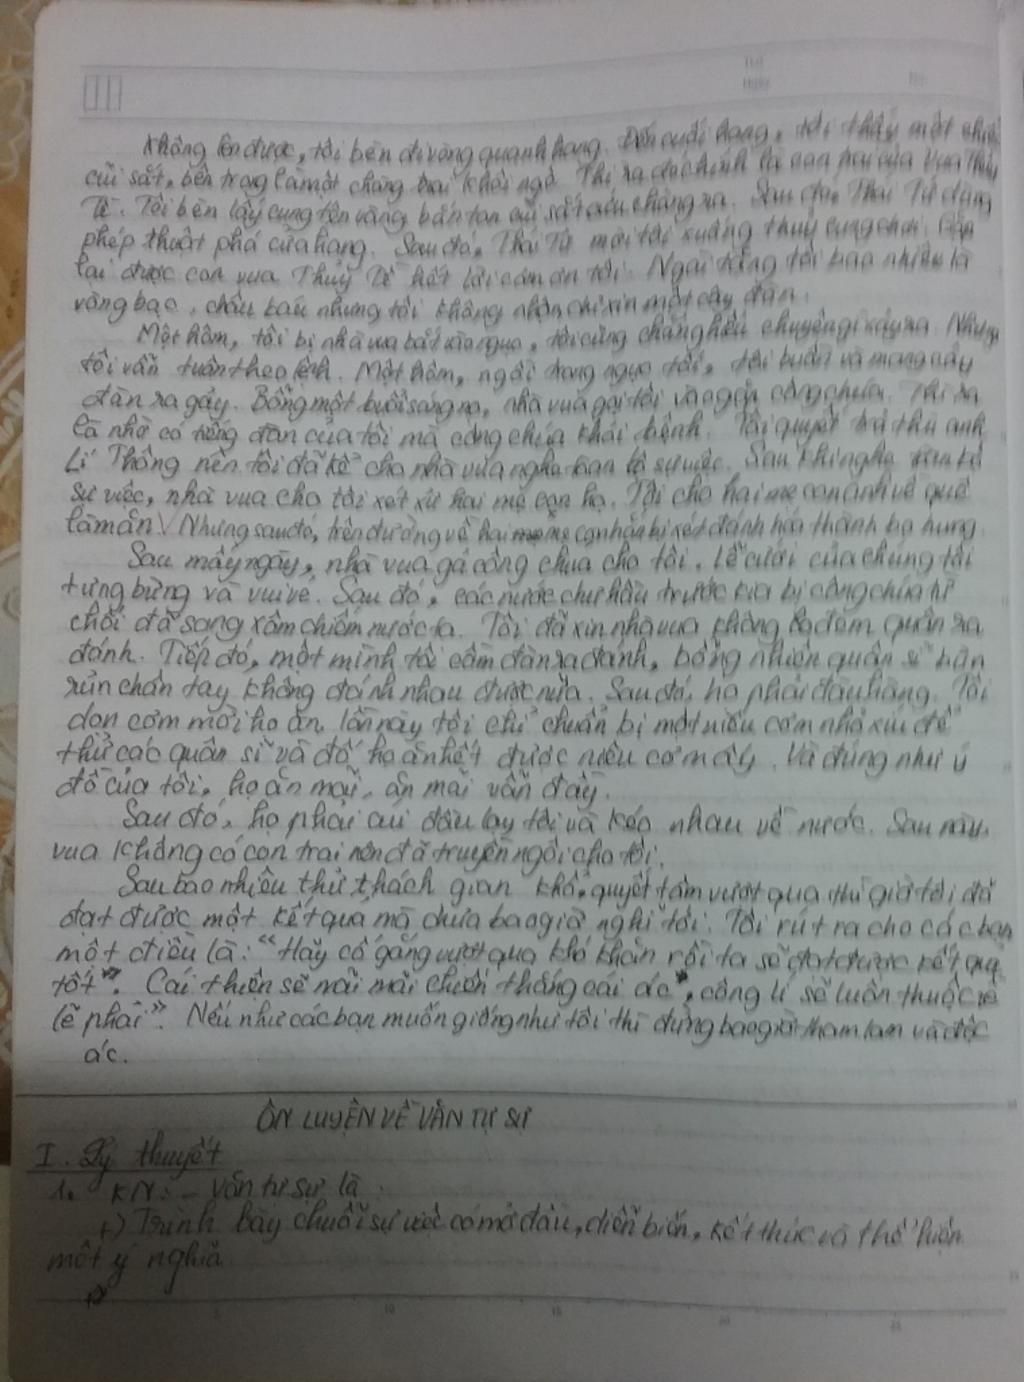 Không lên được, tôi bèn đi vòng quanh hang. Đến cuối hang, tôi thấy một chiếc
cũi sắt, bên trong là một chàng trai khôi ngô. Thì ra đó chính là con trai của vua Thủy
Tề. Tôi bèn lấy cung tên vàng bắn tan cũi sắt cứu chàng ra. Sau đó, Thái Tử dùng
phép thuật phá cửa hang. Sau đó, Thái Tử mời tôi xuống thuỷ cung chơi. Gặp
lại được con vua Thuỷ Tề hết lời cảm ơn tôi. Ngài tặng tôi bao nhiêu là
vàng bạc, châu báu nhưng tôi không nhận chỉ xin một cây đàn.
Một hôm, tôi bị nhà vua bắt vào ngục, tôi cũng chẳng hiểu chuyện gì xảy ra. Nhưng
tôi vẫn tuân theo lệnh. Một hôm, ngồi trong ngục tối, tôi buồn và mang cây
đàn ra gảy. Bỗng một buổi sáng nọ, nhà vua gọi tôi vào gặp công chúa. Thì ra
là nhờ có tiếng đàn của tôi mà công chúa khỏi bệnh. Tôi quyết trả thù anh
Lí Thông nên tôi đã kể cho nhà vua nghe toàn bộ sự việc. Sau khi nghe
sự việc, nhà vua cho tôi xét xử hai mẹ con họ. Tôi cho hai mẹ con anh về quê
làm ăn. Nhưng sau đó, trên đường về hai mẹ con hắn bị sét đánh hóa thành bọ hung.
Sau mấy ngày, nhà vua gả công chúa cho tôi. Lễ cưới của chúng tôi
tưng bừng và vui vẻ. Sau đó, các nước chư hầu trước kia bị công chúa từ
chối đã sang xâm chiếm nước ta. Tôi đã xin nhà vua không đem quân ra
đánh. Tiếp đó, một mình tôi cầm đàn ra đánh, bỗng nhiên quân sĩ bủn
rủn chân tay không đánh nhau được nữa. Sau đó, họ phải đầu hàng. Tôi
dọn cơm mời họ ăn, lần này tôi chỉ chuẩn bị một niêu cơm nhỏ xíu để
thử các quân sĩ và đố họ ăn hết được niêu cơm ấy. Và đúng như ý
đồ của tôi, họ ăn mãi, ăn mãi vẫn đầy.
Sau đó, họ phải cúi đầu lạy tôi và kéo nhau về nước. Sau này,
vua không có con trai nên đã truyền ngôi cho tôi.
Sau bao nhiêu thử thách gian khổ, quyết tâm vượt qua thì giờ tôi đã
đạt được một kết quả mà chưa bao giờ nghĩ tới. Tôi rút ra cho các bạn
một điều là: "Hãy cố gắng vượt qua khó khăn rồi ta sẽ đạt được kết quả
tốt". Cái thiện sẽ mãi mãi chiến thắng cái ác", công lí sẽ luôn thuộc về
lẽ phải". Nếu như các bạn muốn giống như tôi thì đừng bao giờ tham lam và độc
ác.
ÔN LUYỆN VỀ VĂN TỰ SỰ
I. Lý thuyết
1. KN: - Văn tự sự là:
+) Trình bày chuỗi sự việc có mở đầu, diễn biến, kết thúc và thể hiện
một ý nghĩa